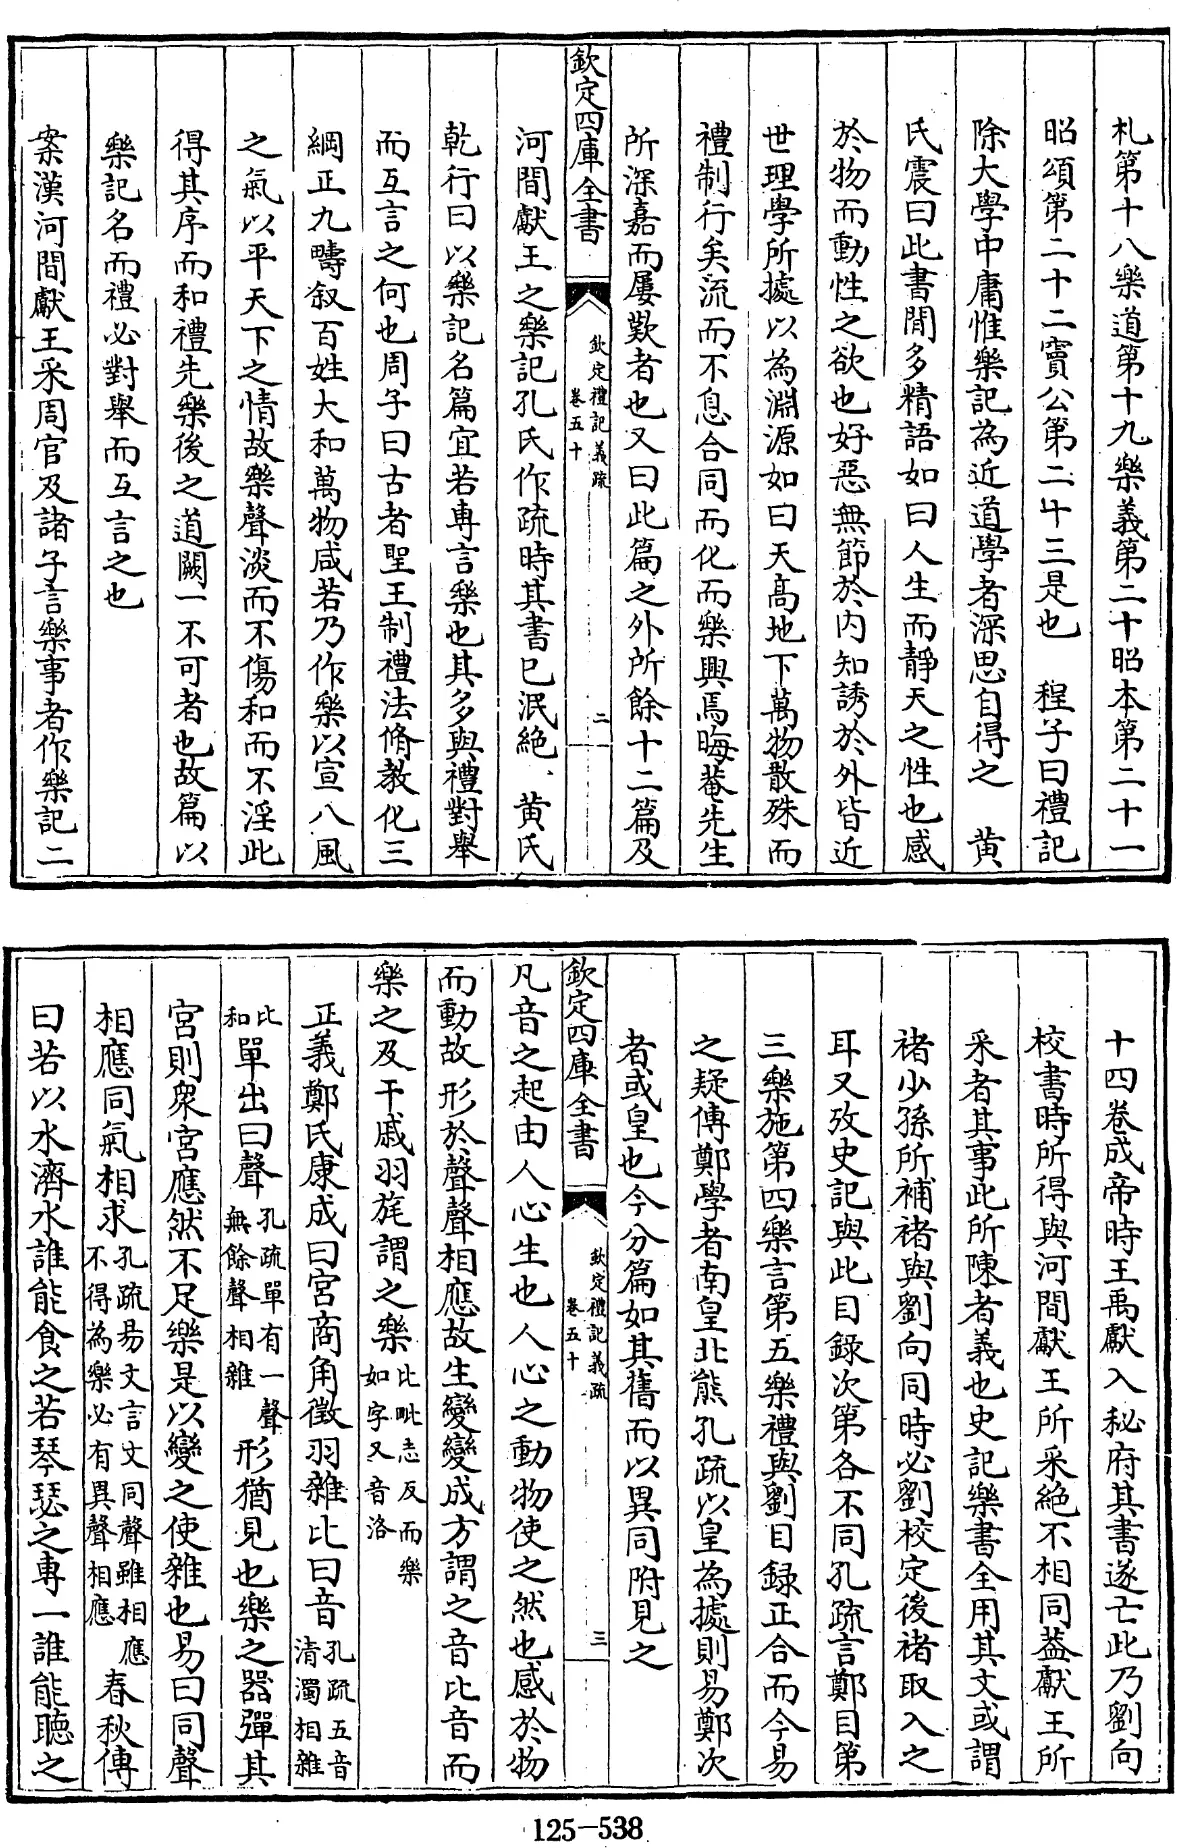 札第十八樂道第十九樂義第二十昭本第二十一
昭頌第二十二竇公第二十三是也　程子曰禮記
除大學中庸惟樂記為近道學者深思自得之　黄
氏震曰此書閒多精語如曰人生而靜天之性也感
於物而動性之欲也好惡無節於内知誘於外皆近
世理學所據以為淵源如曰天髙地下萬物散殊而
禮制行矣流而不息合同而化而樂興焉晦菴先生
所深嘉而屢歎者也又曰此篇之外所餘十二篇及
欽定四庫全書
欽定禮記義疏
卷五十
二
河間獻王之樂記孔氏作疏時其書已泯絶　黄氏
乾行曰以樂記名篇宜若専言樂也其多與禮對舉
而互言之何也周子曰古者聖王制禮法脩教化三
綱正九疇叙百姓大和萬物咸若乃作樂以宣八風
之氣以平天下之情故樂聲淡而不傷和而不淫此
得其序而和禮先樂後之道闕一不可者也故篇以
樂記名而禮必對舉而互言之也
案漢河間獻王采周官及諸子言樂事者作樂記二
十四卷成帝時王禹獻入秘府其書遂亡此乃劉向
校書時所得與河間獻王所采絶不相同葢獻王所
采者其事此所陳者義也史記樂書全用其文或謂
褚少孫所補褚與劉向同時必劉校定後褚取入之
耳又攷史記與此目録次第各不同孔疏言鄭目第
三樂施第四樂言第五樂禮與劉目録正合而今易
之疑傳鄭學者南皇北熊孔疏以皇為據則易鄭次
者或皇也今分篇如其舊而以異同附見之
欽定四庫全書
欽定禮記義疏
卷五十
三
凡音之起由人心生也人心之動物使之然也感於物
而動故形於聲聲相應故生變變成方謂之音比音而
樂之及干戚羽旄謂之樂比毗志反而樂如字又音洛
正義鄭氏康成曰宮商角徵羽雜比曰音孔疏五音清濁相雜
比和單出曰聲孔疏單有一聲無餘聲相雜形猶見也樂之器彈其
宮則衆宮應然不足樂是以變之使雜也易曰同聲
相應同氣相求孔疏易文言文同聲雖相應不得為樂必有異聲相應春秋傳
曰若以水濟水誰能食之若琴瑟之専一誰能聽之
125-538